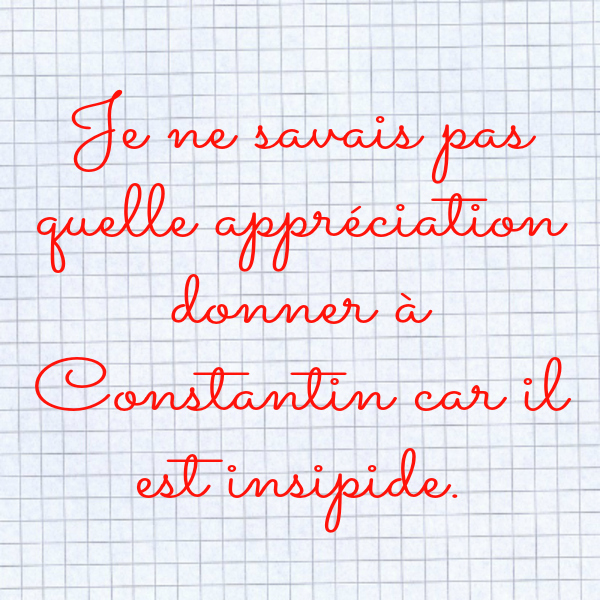 Je ne savais pas
quelle appréciation
donner à
Constantin car il
est insipide.